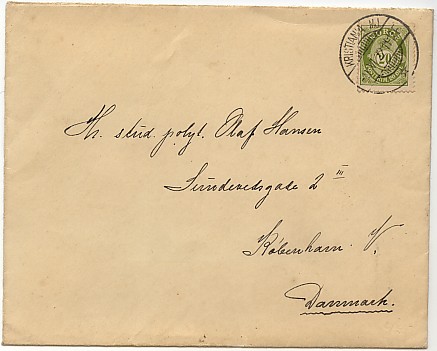 KRISTIANIA
NORGE
Hr. stud. polyt. Olaf Hansen
2 III
København V.
Danmark.